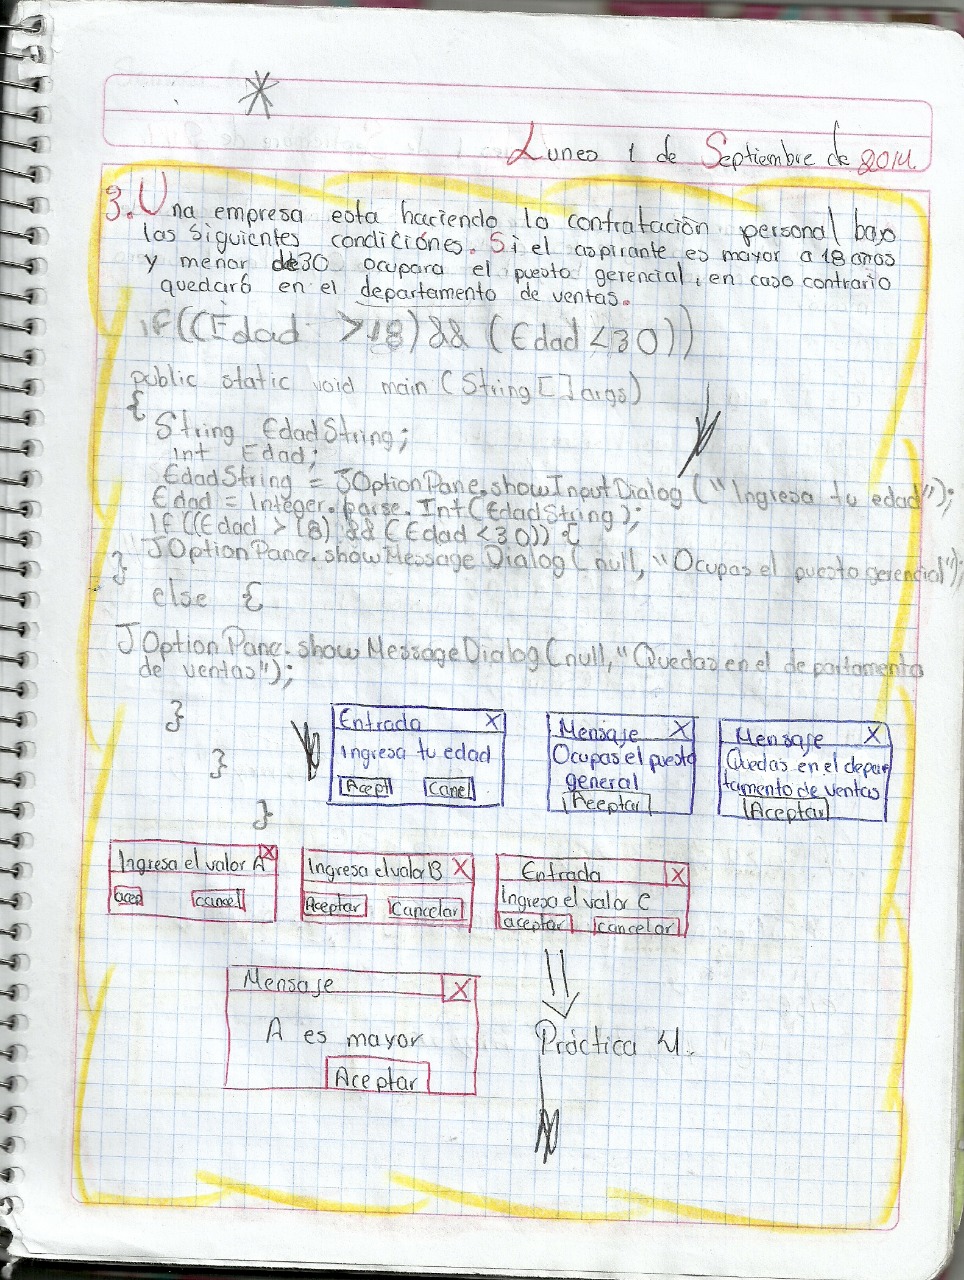 Lunes 1 de Septiembre de 2014
3. Una empresa esta haciendo la contratación personal bajo
las siguientes condiciónes. Si el aspirante es mayor a 18 años
y menor de 30 ocupara el puesto gerencial, en caso contrario
quedará en el departamento de ventas.
if((Edad >18)&& (Edad<30))
public static void main (String[]args)
{
String EdadString;
int Edad;
EdadString = JOptionPane.showInputDialog ("Ingresa tu edad");
Edad = Integer.parse.Int(EdadString);
if ((Edad > 18) && (Edad <30)) {
JOptionPane.showMessage Dialog( null, "Ocupas el puesto gerencial");
}
else {
JOptionPane.showMessageDialog(null,"Quedas en el departamento
de ventas");
}
}
}
Entrada X
Ingresa tu edad
Acept Canel
Mensaje X
Ocupas el puesto
general
Aceptar
Mensaje X
Quedas en el depar
tamento de ventas
Aceptar
Ingresa el valor A X
acep cancel
Ingresa el valor B X
Aceptar Cancelar
Entrada X
Ingresa el valor C
aceptar cancelar
Mensaje X
A es mayor
Aceptar
Práctica 4.